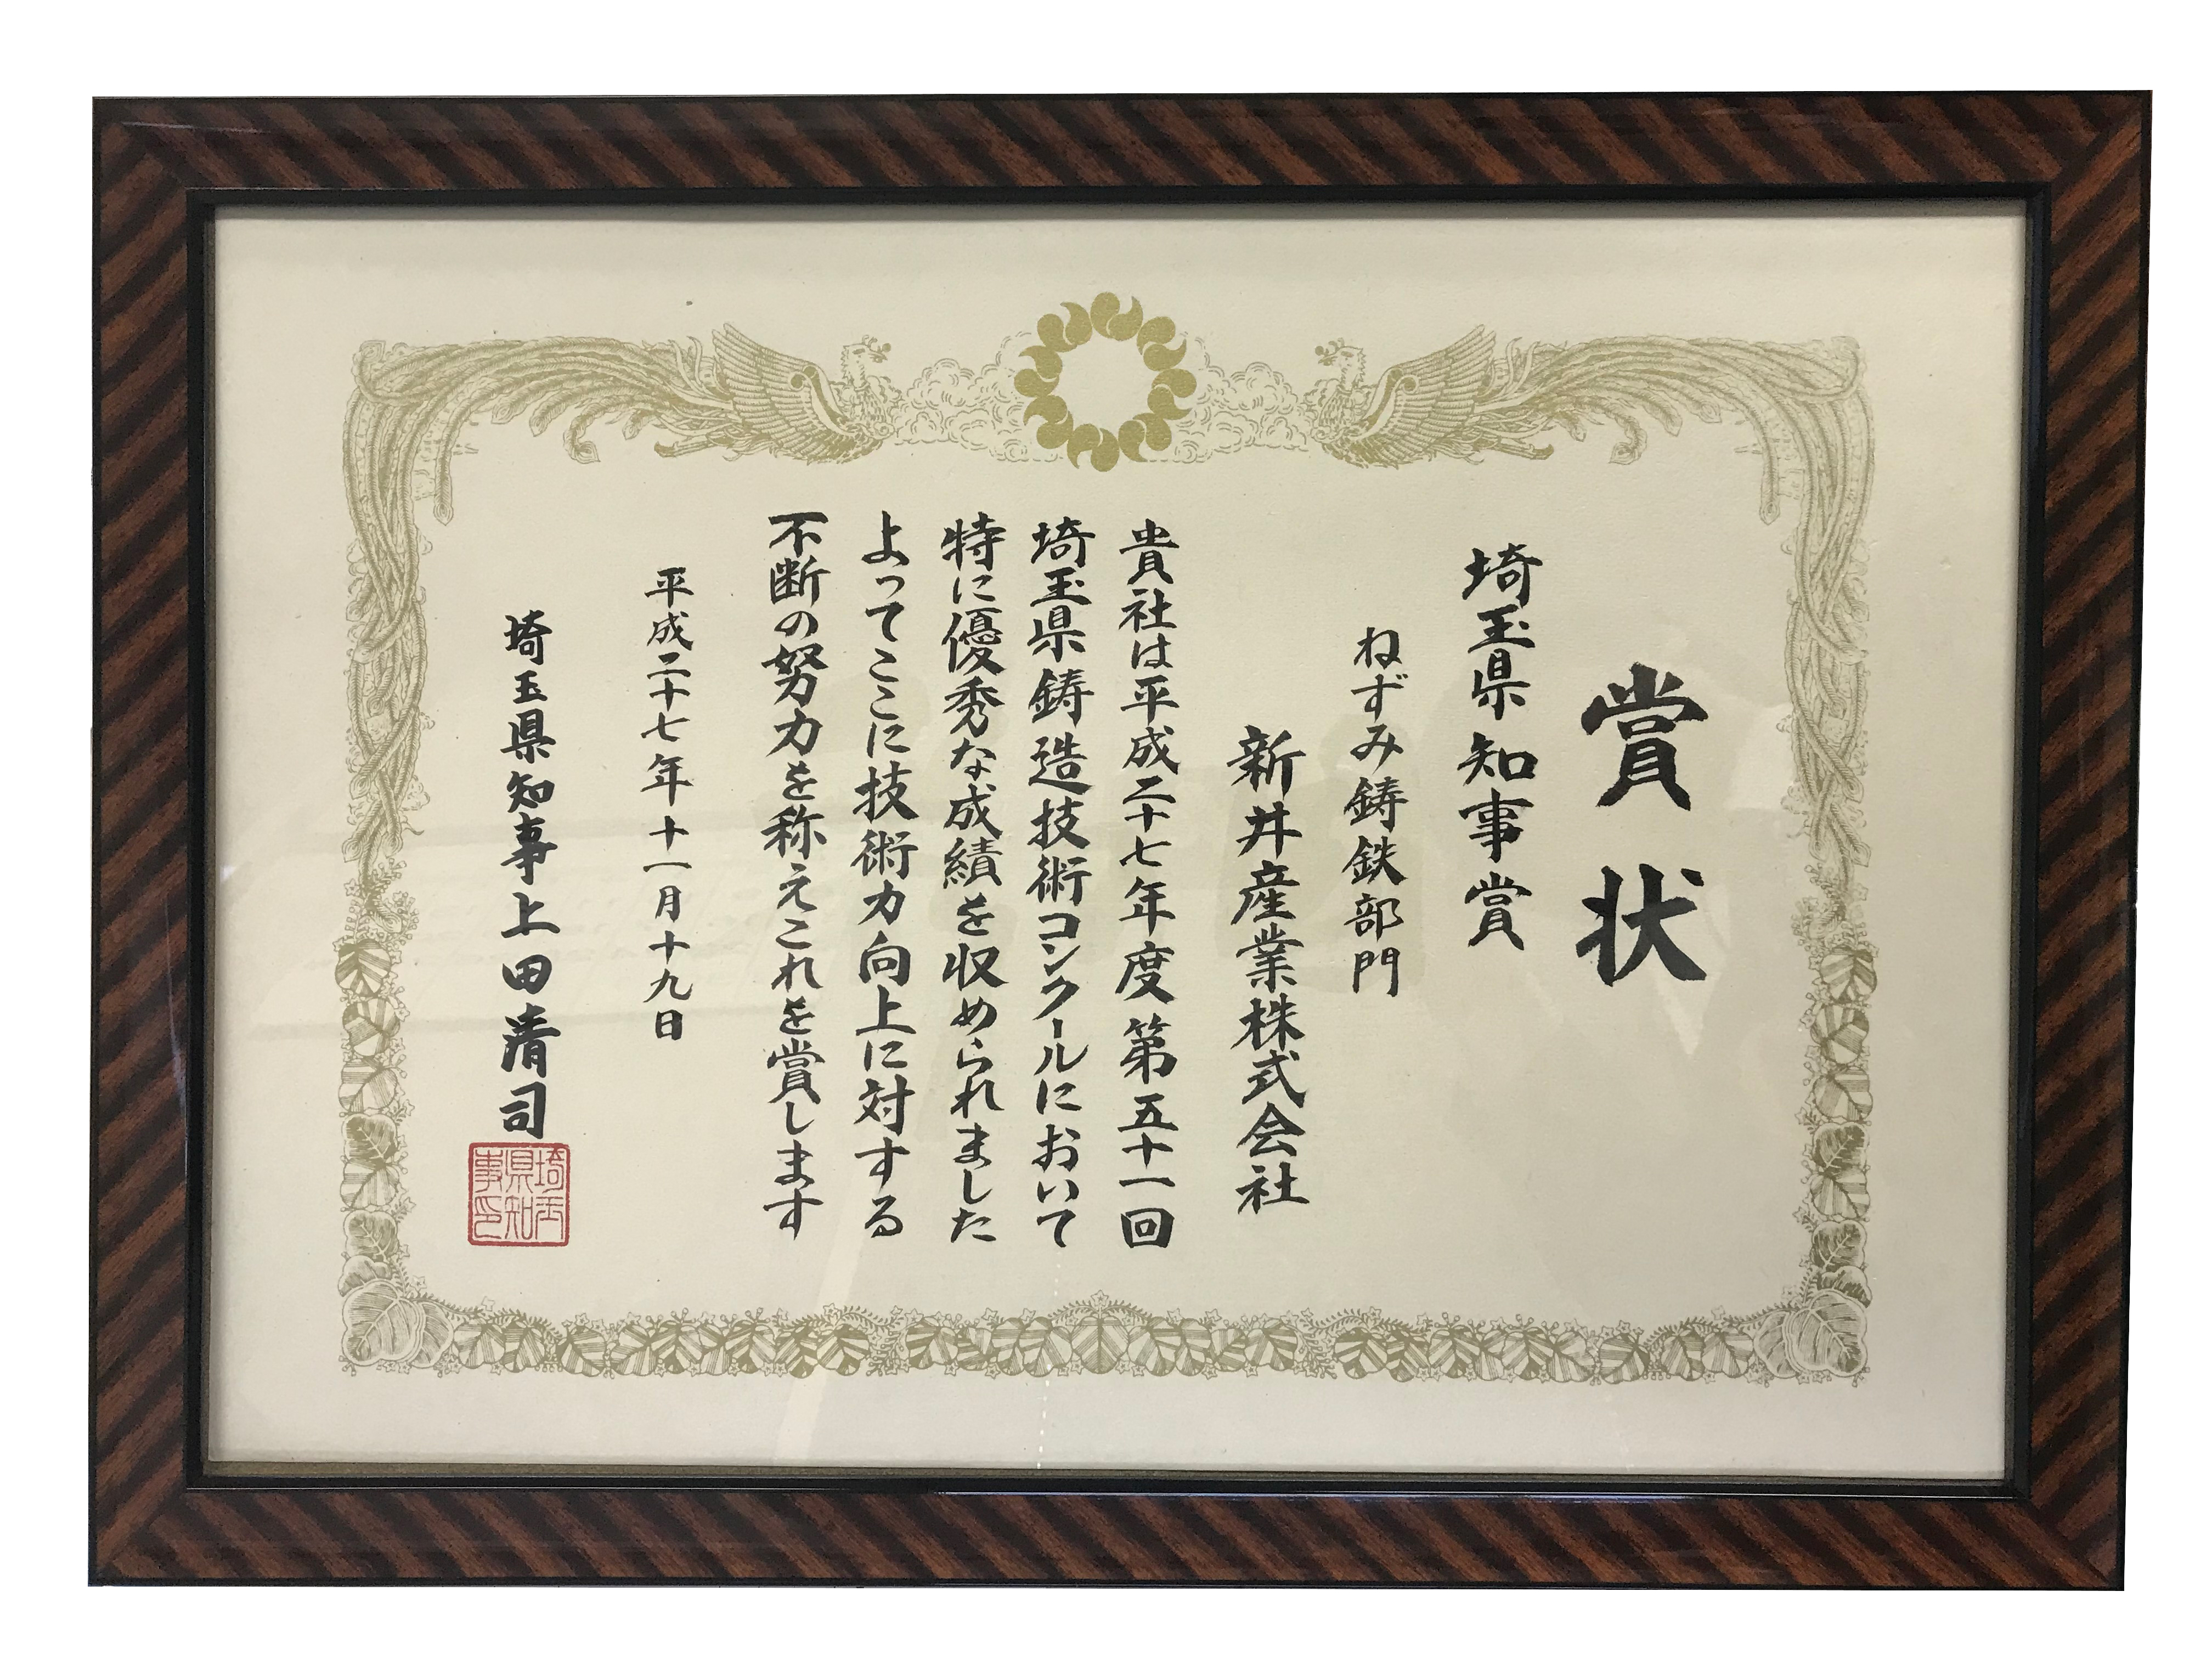 賞状
埼玉県知事賞
ねずみ鋳鉄部門
新井産業株式会社
貴社は平成二十七年度第五十一回
埼玉県鋳造技術コンクールにおいて
特に優秀な成績を収められました
よってここに技術力向上に対する
不断の努力を称えこれを賞します
平成二十七年十一月十九日
埼玉県知事上田清司
埼玉
県知
事印